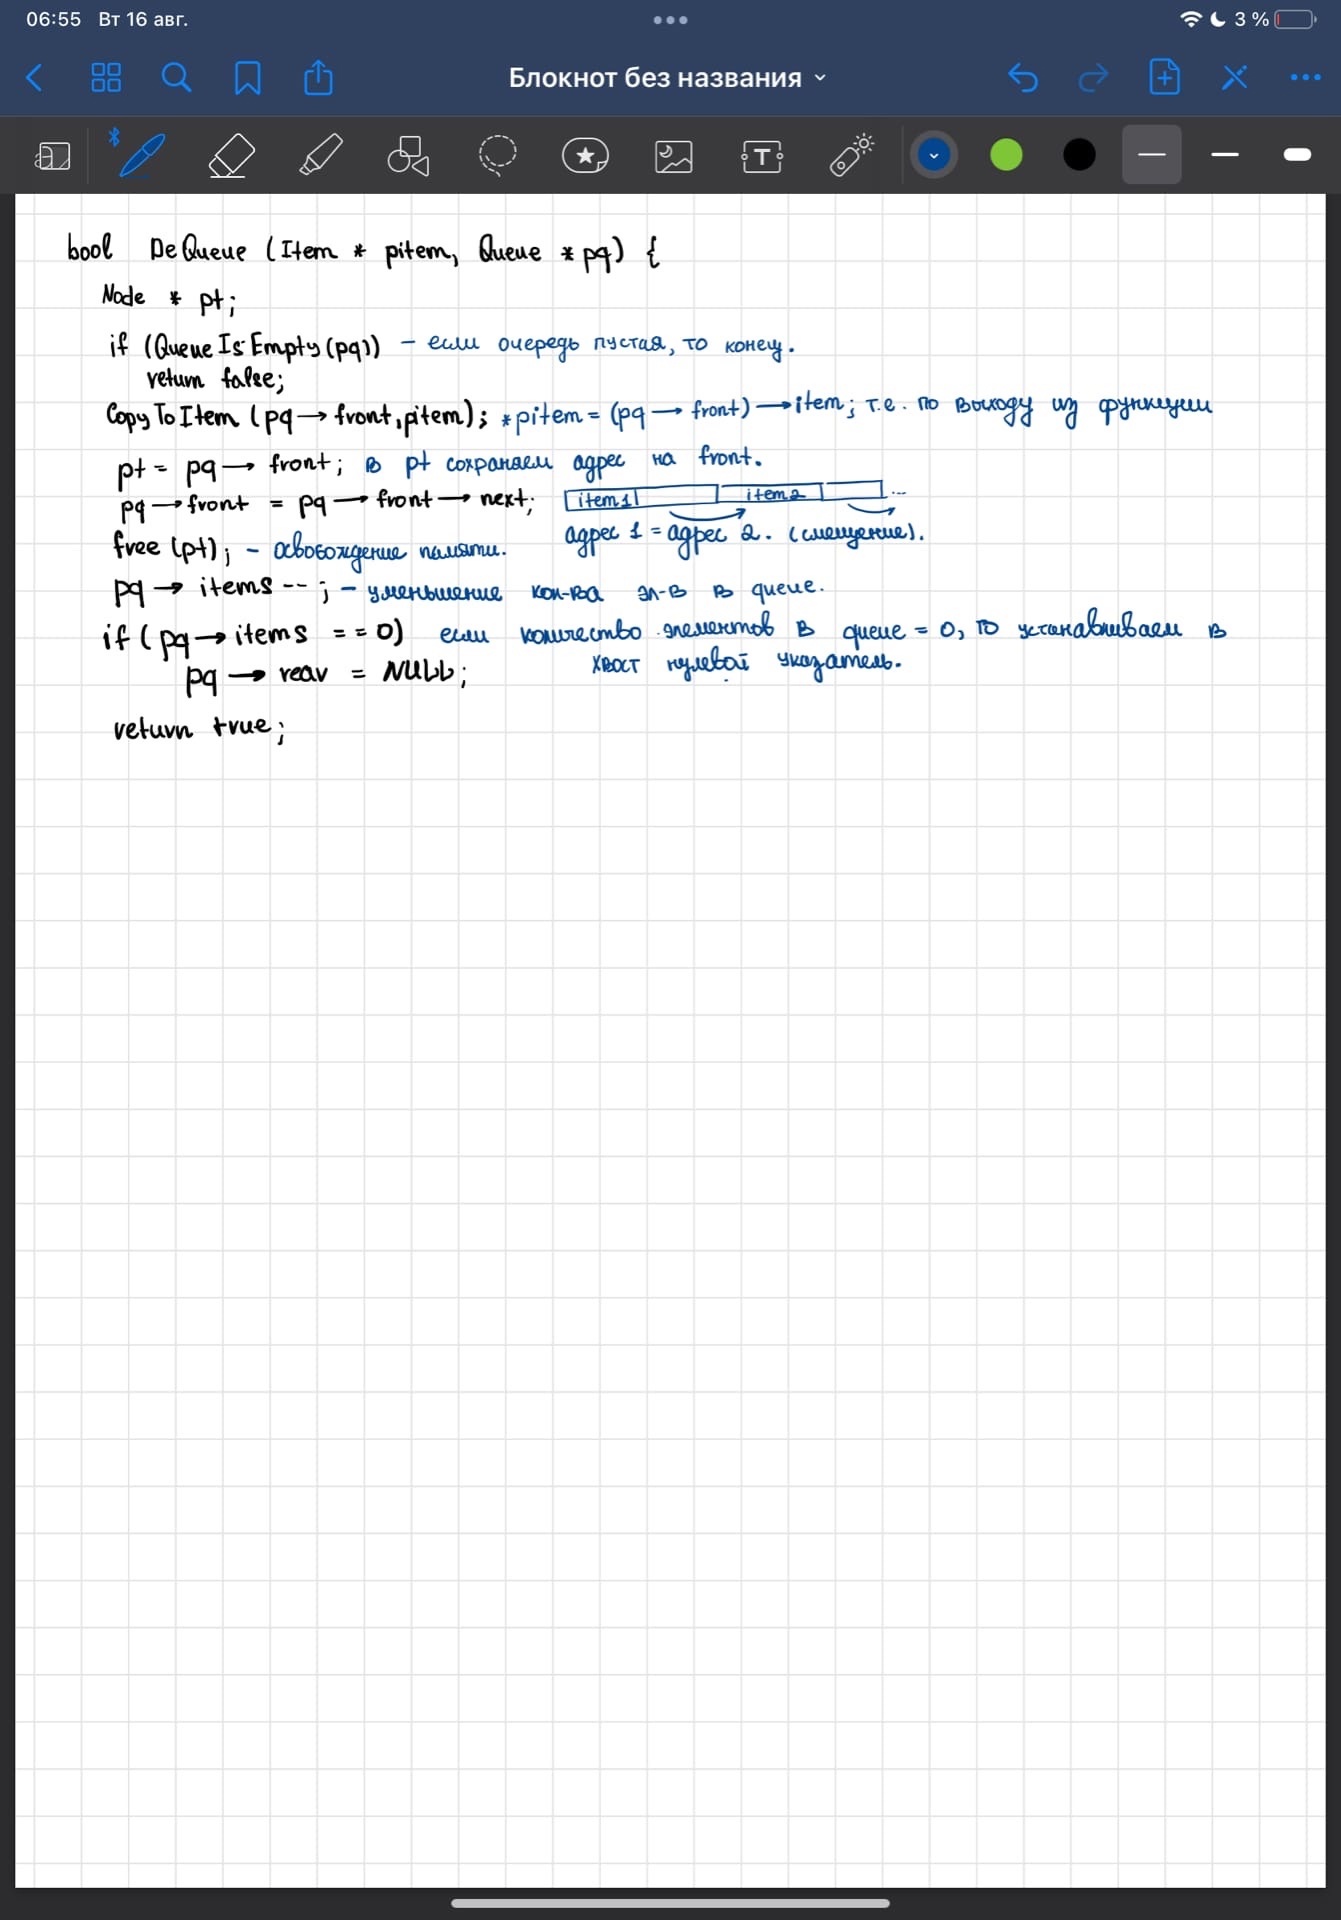 06:55 Вт 16 авг.
3 %
Блокнот без названия
bool DeQueue (Item * pitem, Queue * pq) {
Node * pt;
if (QueueIsEmpty(pq)) – если очередь пустая, то конец.
return false;
CopyToItem (pq → front, pitem); *pitem = (pq → front) → item; т.е. по выходу из функции
pt = pq → front; в pt сохраняем адрес на front.
pq → front = pq → front → next; item1 item2 ...
free (pt); – освобождение памяти. адрес 1 = адрес 2. (смещение).
pq → items --; – уменьшение кол-ва эл-в в queue.
if (pq → items == 0) если количество элементов в queue = 0, то устанавливаем в
pq → rear = NULL; хвост нулевой указатель.
return true;